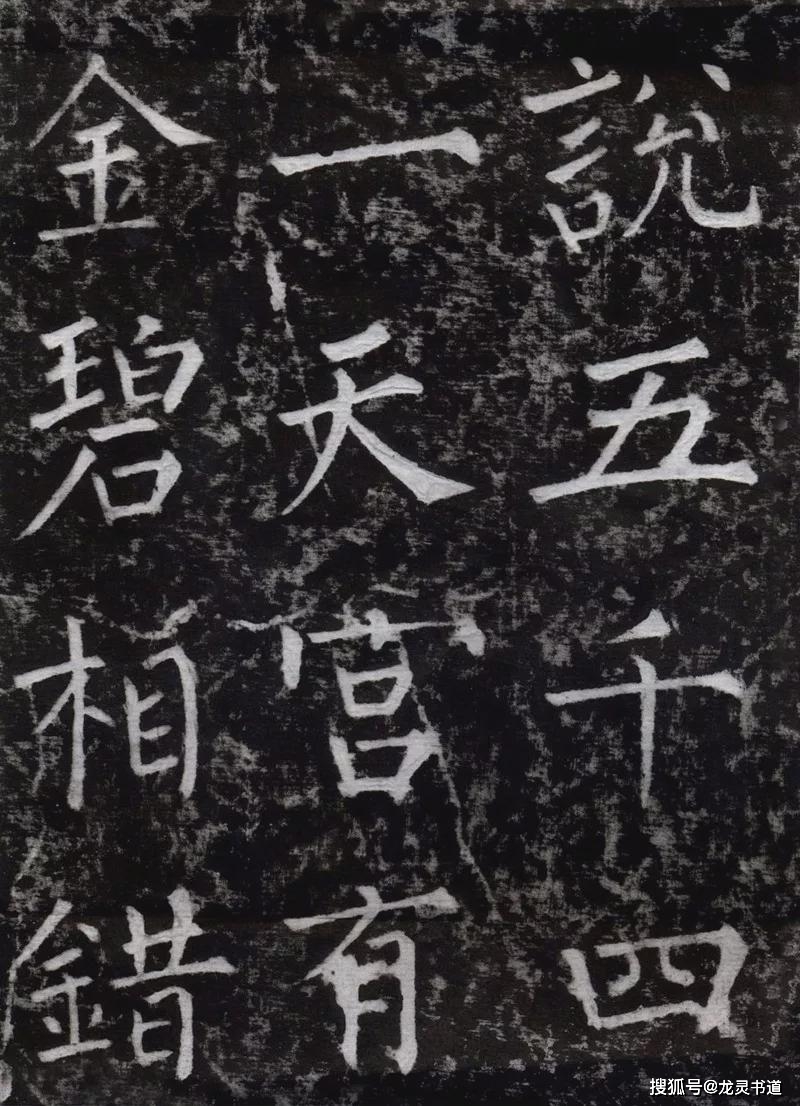 說五千四
一天宮有
金碧相錯
搜狐号@龙灵书道